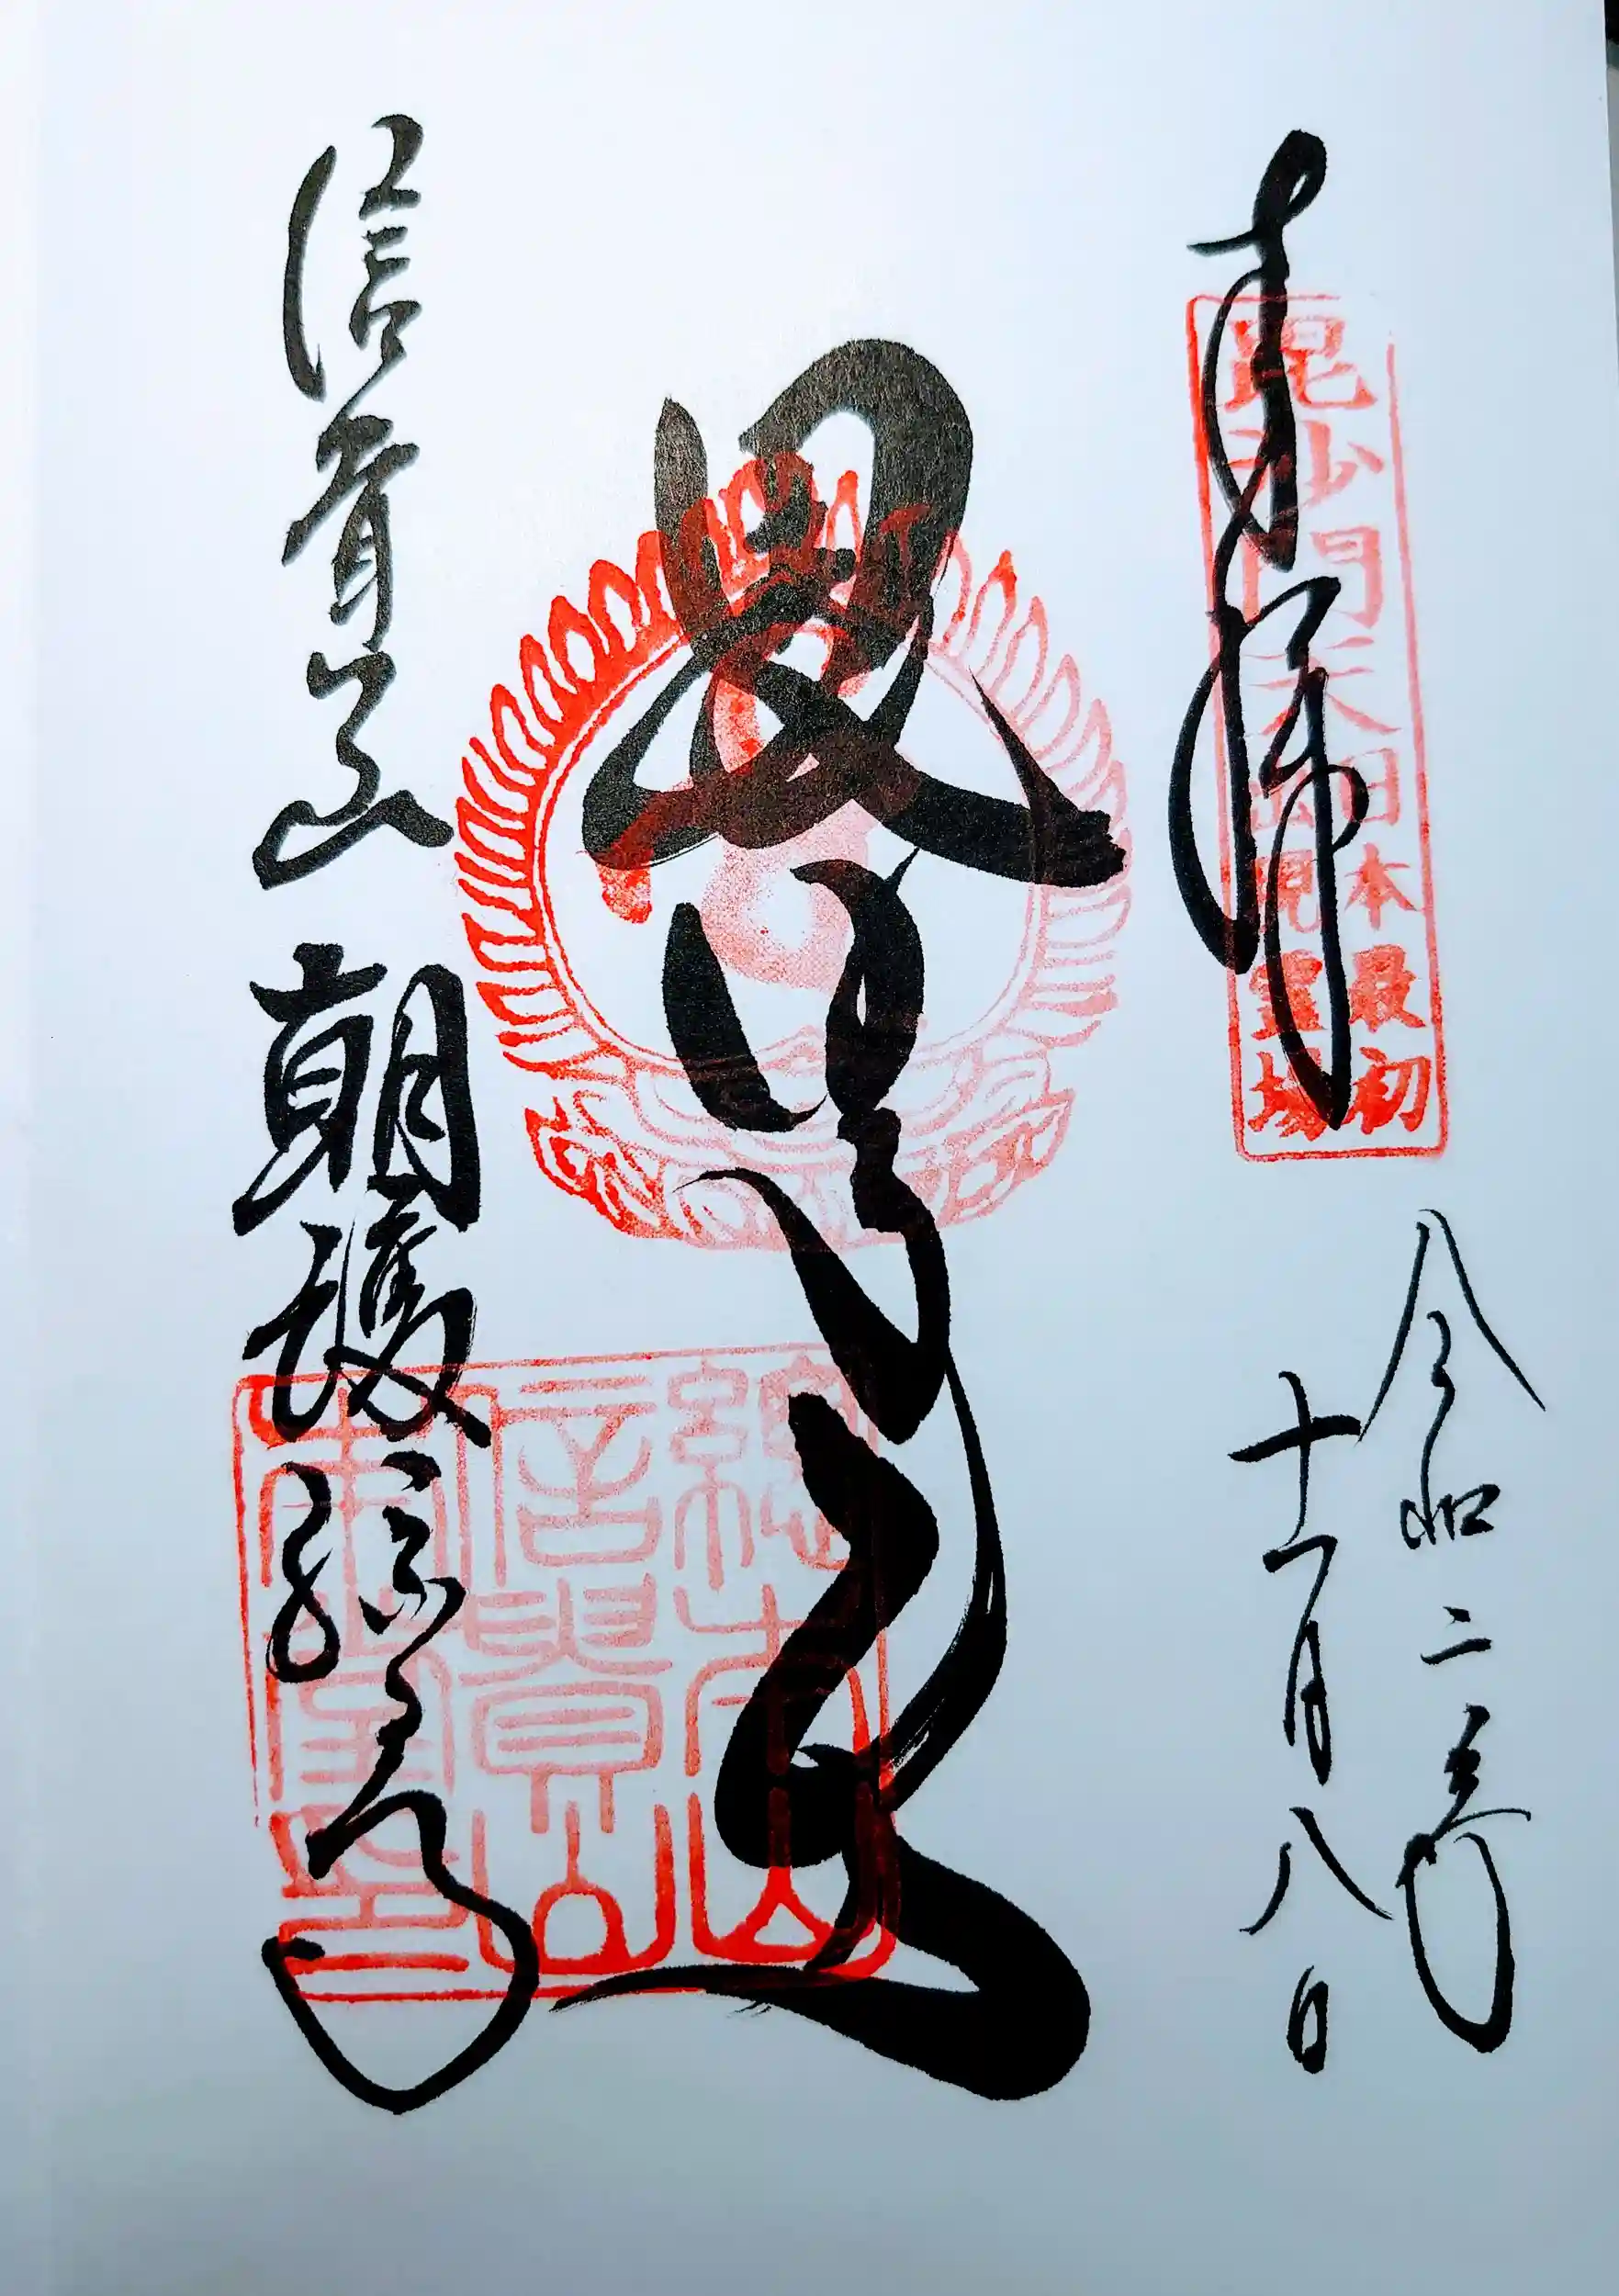 奉拝
毘沙門天
日本最初
出現霊場
令和二年
十一月八日
總本山
信貴山
本堂印
信貴山 朝護孫子寺